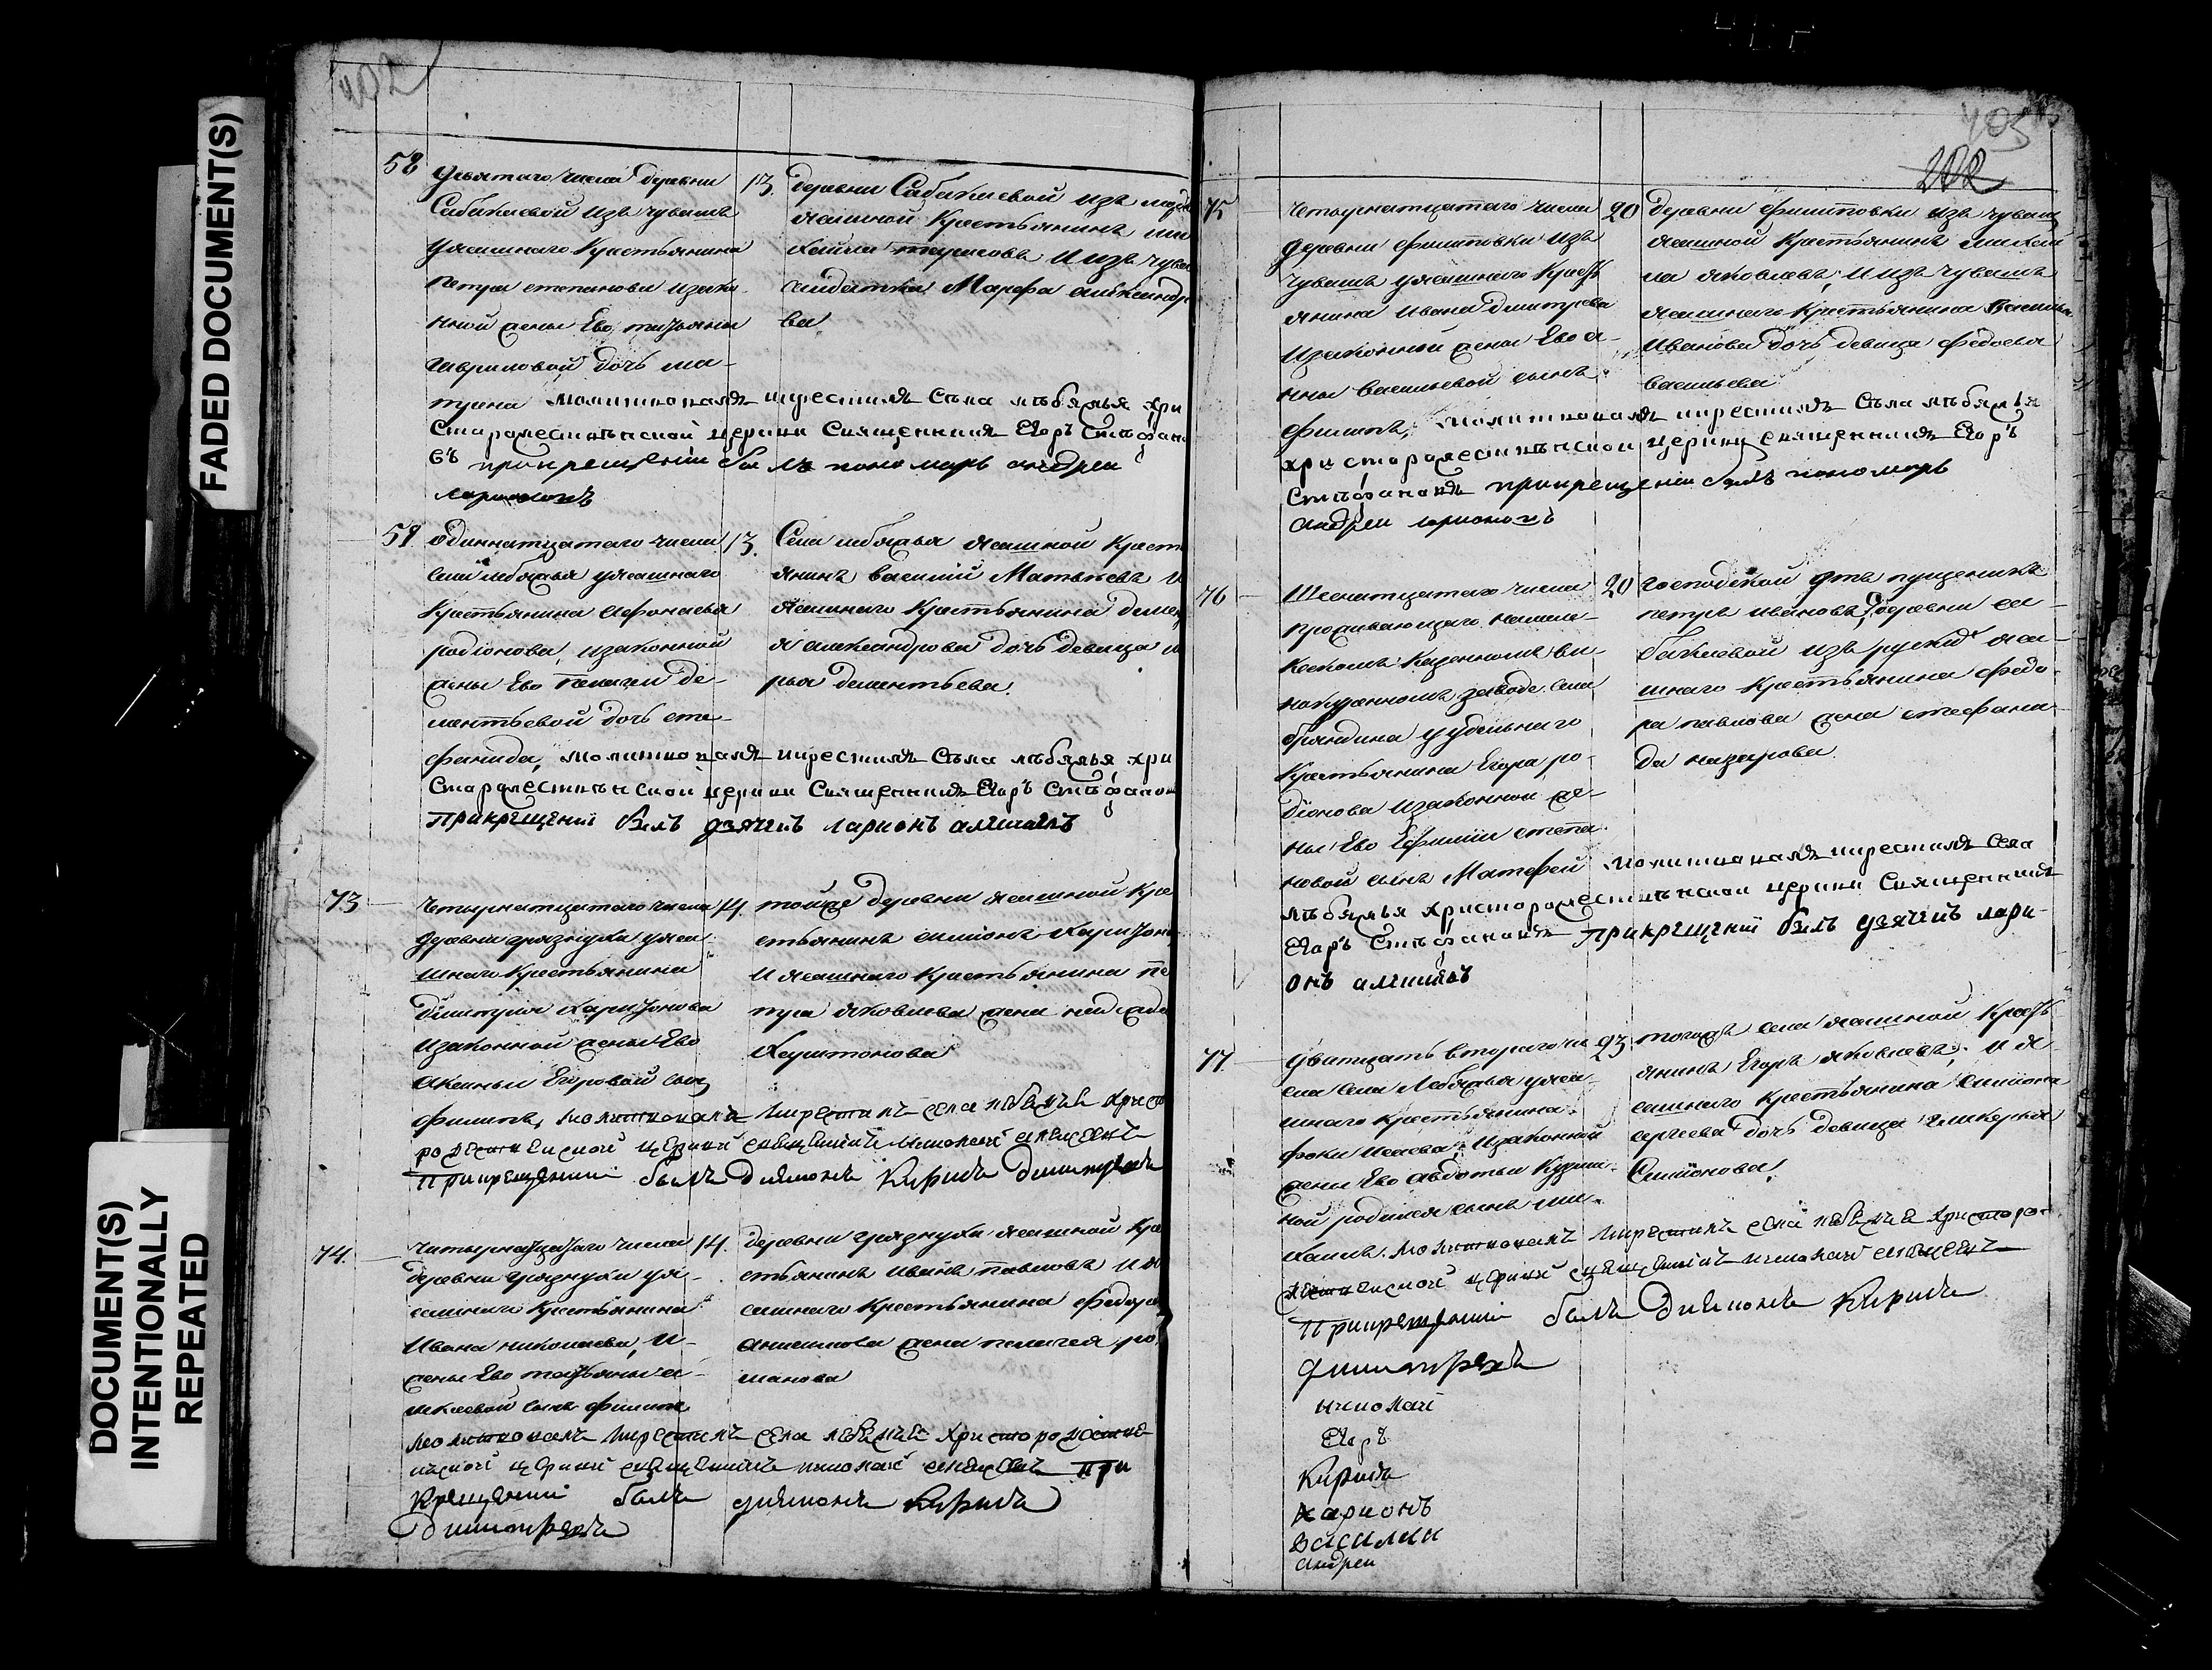 FADED DOCUMENT(S)
DOCUMENT(S)
INTENTIONALLY
REPEATED
402
58 девятаго числа деревни
Сабакаевой изъ чувашъ
уясашнаго Крестьянина
Петра степанова изако
нной жены Ево татьяны
гавриловой дочь ма-
трина молитвовалъ икрестилъ Села лебяжья Хри
Сторождественской церкви Священникъ Егоръ Стефано
въ прикрещении былъ пономарь андреи
ларионовъ
13. деревни Сабакаевой изъ
ясашной Крестьянинъ ми
хаила тарасовъ и изъ чува
салдатка Марфа александро
ва
59. одиннатцатаго числа
села лебяжья уясашнаго
Крестьянина Афонасья
родионова, изаконной
жены Ево пелагеи де-
ментьевой дочь сте-
фанида, молитвовалъ икрестилъ Села лебяжья Хри
Сторождественской церкви Священникъ Егоръ Стефанов
Прикрещении былъ дьячекъ ларионъ алексеевъ
13. Села лебяжья ясашной Крест
янинъ василий Матвеевъ и
ясашнаго Крестьянина демен
я александрова дочь девица
рья дементьева.
73 четырнатцатаго числа
деревни грязнухи уяса
шнаго Крестьянина
Димитрия харитонова
изаконной жены Ево
аксиньи Егоровой сын
филипъ, молитвовалъ икрестилъ села лебяжье христо
рождественской церкви священникъ николай
прикрещении былъ диаконъ Кирилъ димитревъ
14. тойже деревни ясашной Кре
стьянинъ симионъ харитоно
и ясашнаго Крестьянина пе
тра яковлева жена надежда
харитонова
74. читырнатцатаго числа
деревни грязнухи уя-
сашнаго Крестьянина
Ивана николаева, и-
жены Ево татьяны а-
лексеевой сынъ филипъ
молитвовалъ икрестилъ села лебяжье христорождестве
нской церкви священникъ николай при
крещении былъ диаконъ Кирилъ
Димитревъ
14. деревни грязнухи ясашной Кре
стьянинъ иванъ павловъ и я
сашнаго Крестьянина федора
анисимова жена пелагея ро
манова
403
202
75 четырнатцатаго числа
деревни филиповки изъ
чувашъ уясашнаго Кресть
янина ивана дмитрева
изаконной жены Ево а-
нны васильевой сынъ
филипъ, молитвовалъ икрестилъ Села лебяжья
христорождественской церкви священникъ Егоръ
Стефановъ прикрещении былъ пономарь
андреи ларионовъ
20 деревни филиповки изъ чуваш
ясашной Крестьянинъ михаи
ла яковлевъ, и изъ чувашъ
ясашнаго Крестьянина Василья
Иванова дочь девица федосья
васильева
76 Шеснатцатаго числа
проживающаго
Казенномъ ви-
нокуренномъ заводе села
бряндина уудельнаго
Крестьянина Егора ро-
дионова изаконной же-
ны Ево Ефимии степа
новой сынъ Матфей молитвовалъ икрестилъ Села
лебяжья христорождественской церкви Священникъ
Егоръ Стефановъ прикрещении былъ дьячекъ лари-
онъ алексеевъ
20 господской отъ пущеникъ
петръ ивановъ, деревни са-
бакаевой изъ руских яса-
шнаго Крестьянина федо-
ра павлова жена стефани
да назарова.
77. дватцать втораго чи
сла села Лебяжья уяса-
шнаго Крестьянина
фоки исаева изаконной
жены Ево авдотьи Кузми-
ной родился сынъ ми-
хаилъ. молитвовалъ икрестилъ села лебяжье христорож
дественской церкви священникъ николай
прикрещении былъ Диаконъ Кирилъ
димитревъ
николай
Егоръ
Кирилъ
ларионъ
василии
андреи
23. тогожъ села ясашной Кресть
янинъ Егоръ яковлевъ, и я-
сашнаго Крестьянина симиона
сергеева дочь девица гликерья
Симионова.